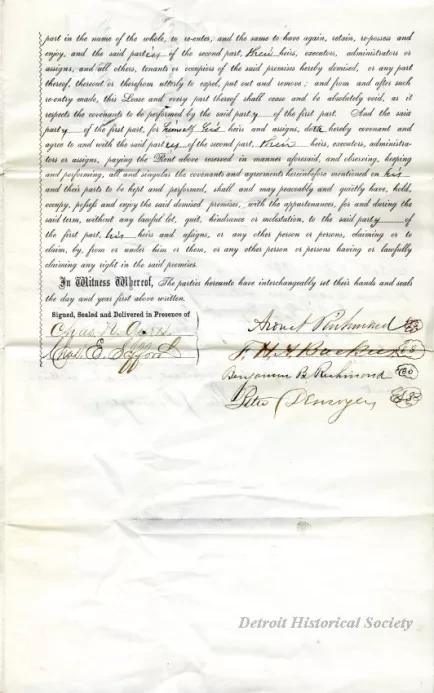 part in the name of the whole, to re-enter; and the same to have again, retain, re-possess and
enjoy, and the said parties of the second part, their heirs, executors, administrators or
assigns, and all others, tenants or occupiers of the said premises hereby demised, or any part
thereof, thereout or therefrom utterly to expel, put out and remove; and from and after such
re-entry made, this Lease and every part thereof shall cease and be absolutely void, as it
respects the covenants to be performed by the said party of the first part. And the said
party of the first part, for himself his heirs and assigns, doth hereby covenant and
agree to and with the said parties of the second part, their heirs, executors, administra-
tors or assigns, paying the Rent above reserved in manner aforesaid, and observing, keeping
and performing, all and singular the covenants and agreements hereinbefore mentioned on his
and their parts to be kept and performed, shall and may peaceably and quietly have, hold,
occupy, possess and enjoy the said demised premises, with the appurtenances, for and during the
said term, without any lawful let, suit, hindrance or molestation, to the said party of
the first part, his heirs and assigns, or any other person or persons, claiming or to
claim, by, from or under him or them, or any other person or persons having or lawfully
claiming any right in the said premises.
In Witness Whereof, The parties hereunto have interchangeably set their hands and seals
the day and year first above written.
Signed, Sealed and Delivered in Presence of
Chas
Chas. E. Safford
Richmond
F. H. A. Backus
Benjamin B. Richmond
Peter Desnoyers
Detroit Historical Society